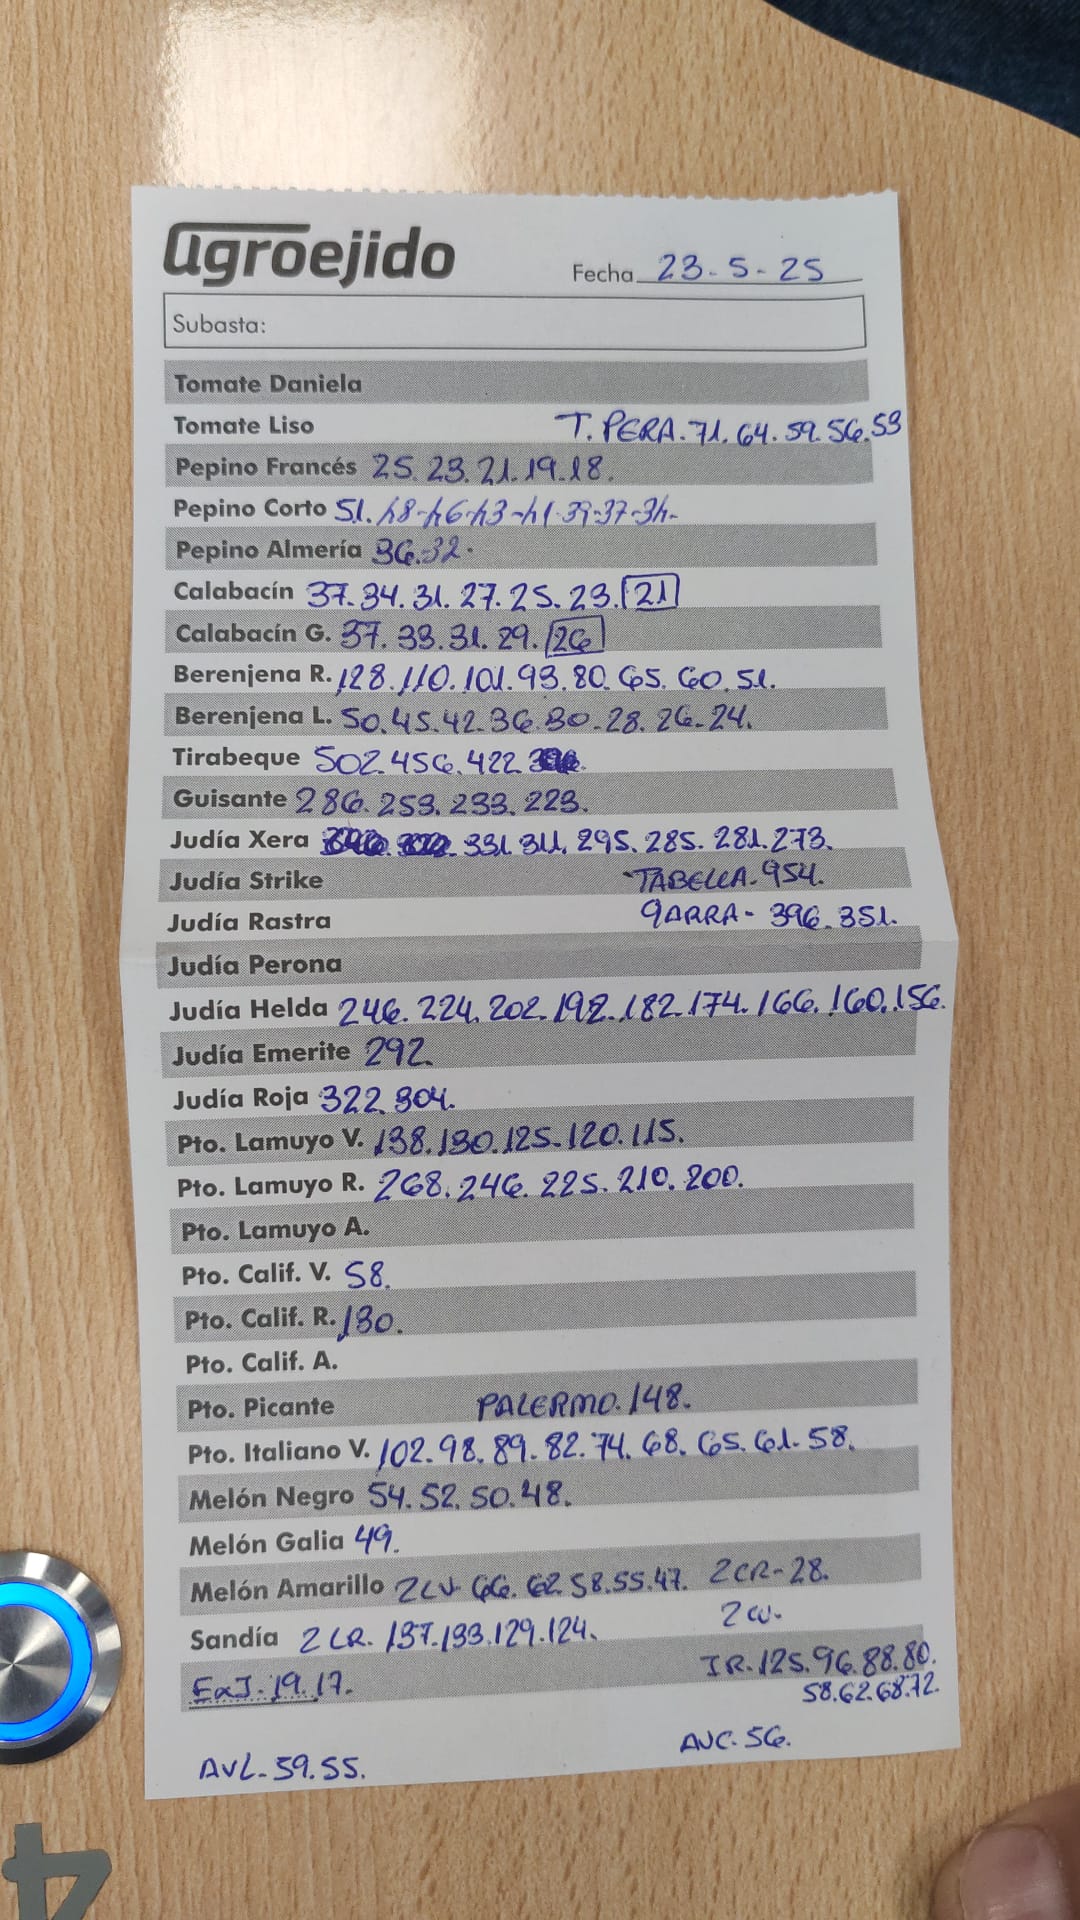 agroejido
Fecha 23-5-25
Subasta:
Tomate Daniela
Tomate Liso T. PERA.71.64.59.56.53
Pepino Francés 25.23.21.19.18.
Pepino Corto 51.48-46-43-41-39-37-34-
Pepino Almería 36.32.
Calabacín 37.34.31.27.25.23.21
Calabacín G. 37.33.31.29.26
Berenjena R. 128.110.101.93.80.65.60.51.
Berenjena L. 50.45.42.36.30-28.26-24.
Tirabeque 502.456.422
Guisante 286.253.233.223.
Judía Xera 331.311.295.285.281.273.
Judía Strike TABELLA-954.
Judía Rastra GARRA-396.351.
Judía Perona
Judía Helda 246.224.202.192.182.174.166.160.156.
Judía Emerite 292.
Judía Roja 322.304.
Pto. Lamuyo V. 138.130.125.120.115.
Pto. Lamuyo R. 268.246.225.210.200.
Pto. Lamuyo A.
Pto. Calif. V. 58.
Pto. Calif. R. 130.
Pto. Calif. A.
Pto. Picante PALERMO.148.
Pto. Italiano V. 102.98.89.82.74.68.65.61.58.
Melón Negro 54.52.50.48.
Melón Galia 49.
Melón Amarillo 66.62.58.55.47. 2CR-28.
Sandía 137.133.129.124.
19.17. 125.96.88.80.
58.62.68.72.
AVC-56.
AVL-59.55.
4